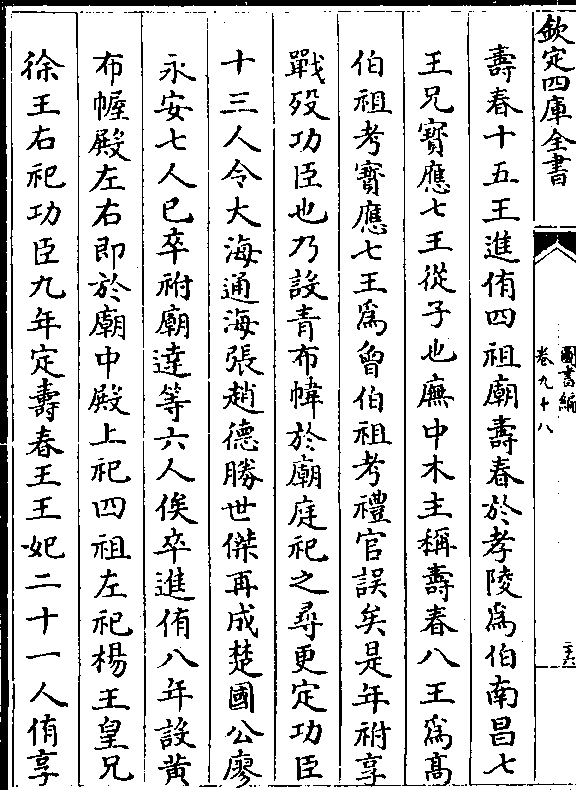 欽定四庫全書
圖書編
卷九十八
壽春十五王進侑四祖廟壽春於孝陵爲伯南昌七
王兄寳應七王從子也廡中木主稱壽春八王爲髙
伯祖考寳應七王爲曾伯祖考禮官誤矣是年祔享
戰歿功臣也乃設青布幃於廟庭祀之尋更定功臣
十三人令大海通海張趙德勝世傑再成楚國公廖
永安七人已卒祔廟達等六人俟卒進侑八年設黄
布幄殿左右即於廟中殿上祀四祖左祀楊王皇兄
徐王右祀功臣九年定壽春王王妃二十一人侑享